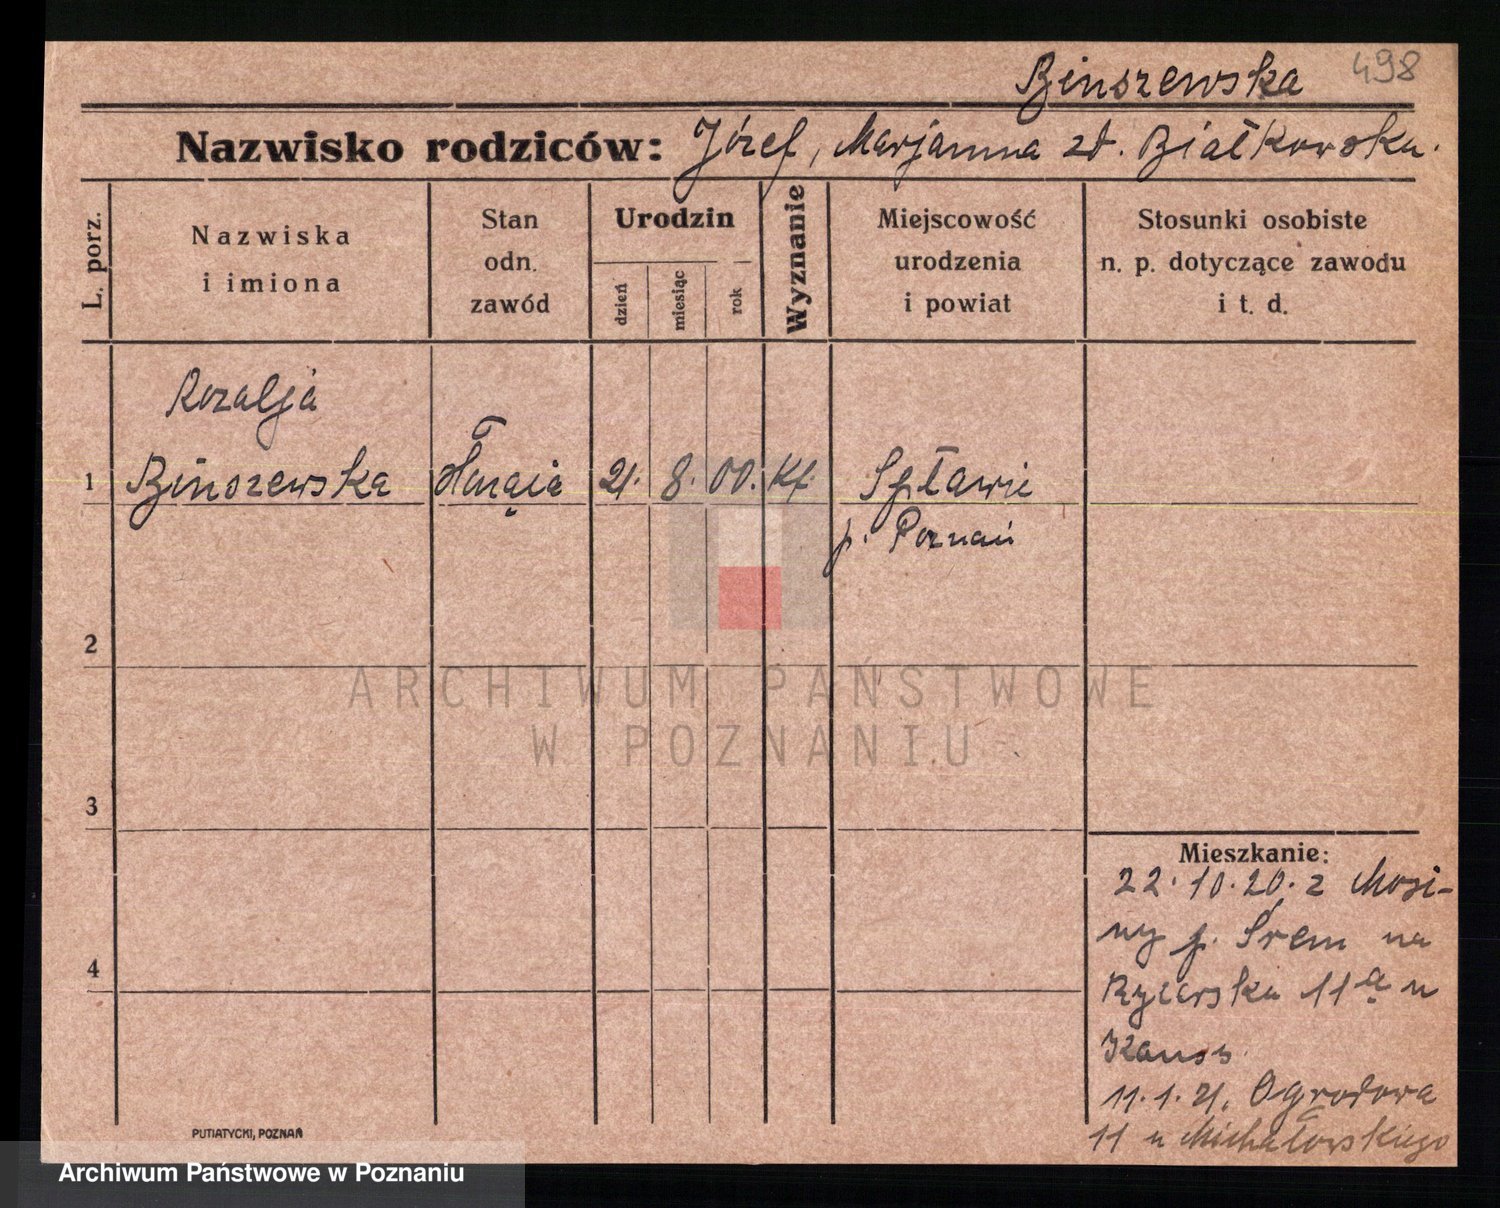 Binszewska 498
Nazwisko rodziców: Józef, Marjanna zd. Białkowska.
L. porz.
Nazwiska
i imiona
Stan
odn.
zawód
Urodzin
dzień
miesiąc
rok
Wyznanie
Miejscowość
urodzenia
i powiat
Stosunki osobiste
n. p. dotyczące zawodu
i t. d.
Rozalja
1 Binszewska 21. 8. 00. Kf. Spławie
p. Poznań
2
3
4
ARCHIWUM PAŃSTWOWE
W POZNANIU
Mieszkanie:
22.10.20. z Mosi-
ny p. Śrem na
11a u
11.1.21. Ogrodowa
11 u Michałowskiego
PUTIATYCKI, POZNAŃ
Archiwum Państwowe w Poznaniu